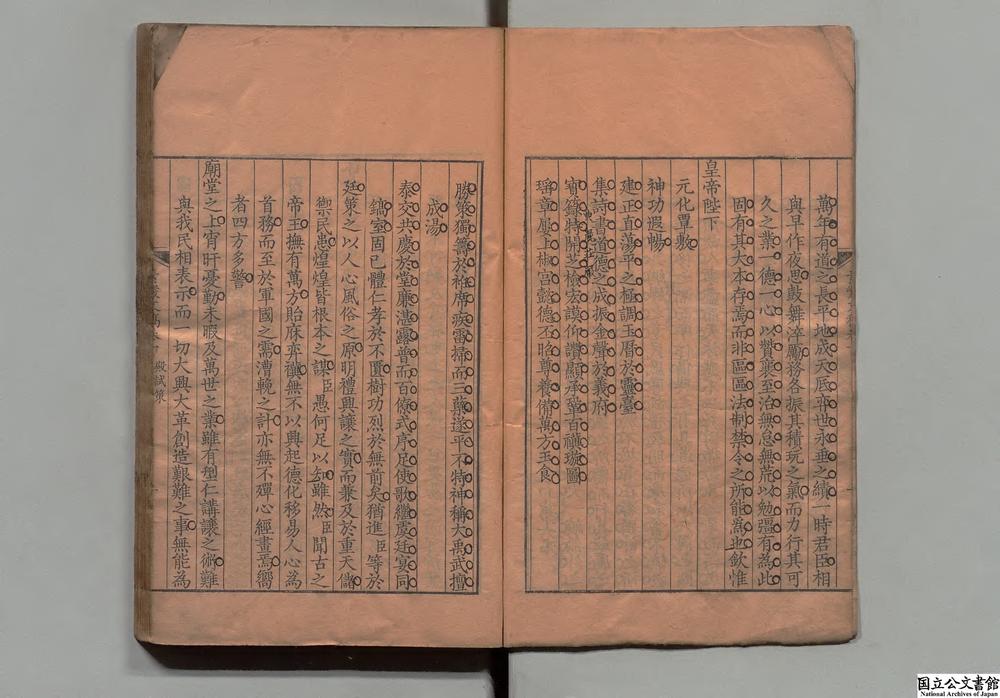 萬年有道之長平地成天底弈世永垂之績一時君臣相
與早作夜思鼓舞淬厲務各振其積玩之氣而力行其可
久之業一德一心以贊襄至治無怠無荒以勉彊有為此
固有其大本存焉而非區區法制禁令之所能為也欽惟
皇帝陛下
元化覃敷
神功遐暢
建正直蕩平之極調玉曆於靈臺
集詩書道德之成振金聲於義府
寶籙特開芝檢宏謨仰讚顯承鞏百禩璇圖
瑤章屢上椒宮懿德丕昭尊養備萬方玉食
勝策獨籌於袵席疾雷掃而三蘖遂平不特神稱大禹武擅
成湯
泰交共慶於堂廉湛露普而百僚式序足使歌繼虞廷宴同
鎬室固已體仁孝於不匱樹功烈於無前矣猶進臣等於
廷策之以人心風俗之原明禮興讓之實而兼及於重天儲
禦民患煌煌皆根本之謀臣愚何足以知雖然臣聞古之
帝王撫有萬方貽庥弈禩無不以興起德化移易人心為
首務而至於軍國之需漕輓之計亦無不殫心經畫焉嚮
者四方多警
廟堂之上宵旰憂勤未暇及萬世之業雖有型仁講讓之微難
與我民相表示而一切大興大革創造艱難之事無能為
殿試策
国立公文書館
National Archives of Japan